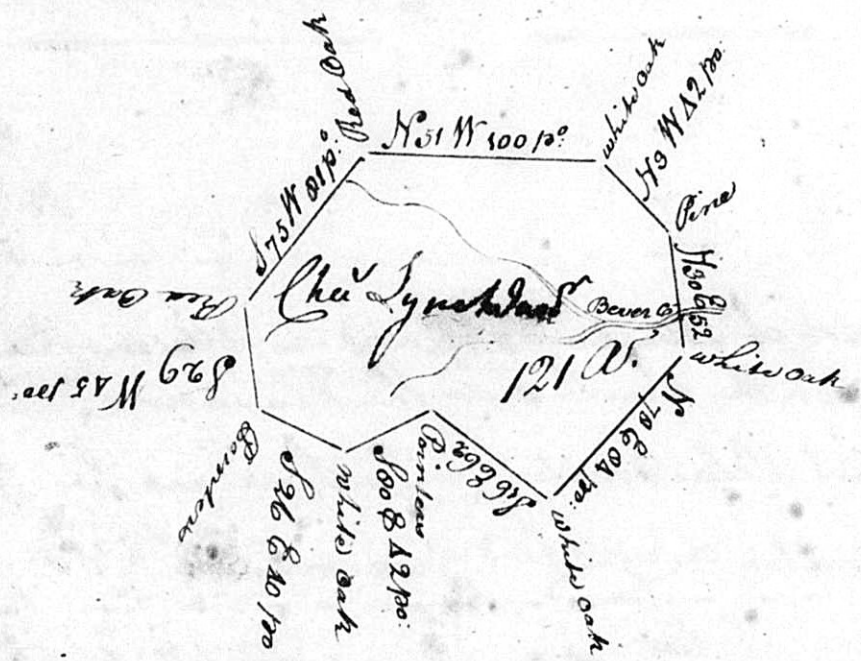 Red Oak
N 51 W 100 po.
white oak
N 9 W 42 po.
Pine
N 30 E 52
white oak
N 70 E 84 po.
white oak
S 16 E 62
Pointers
S 80 E 42 po.
White Oak
S 26 E 40 po
Pointers
S 29 W 45 po.
Red Oak
S 75 W 81 po.
Chs Lynch
Bever C
121 A.